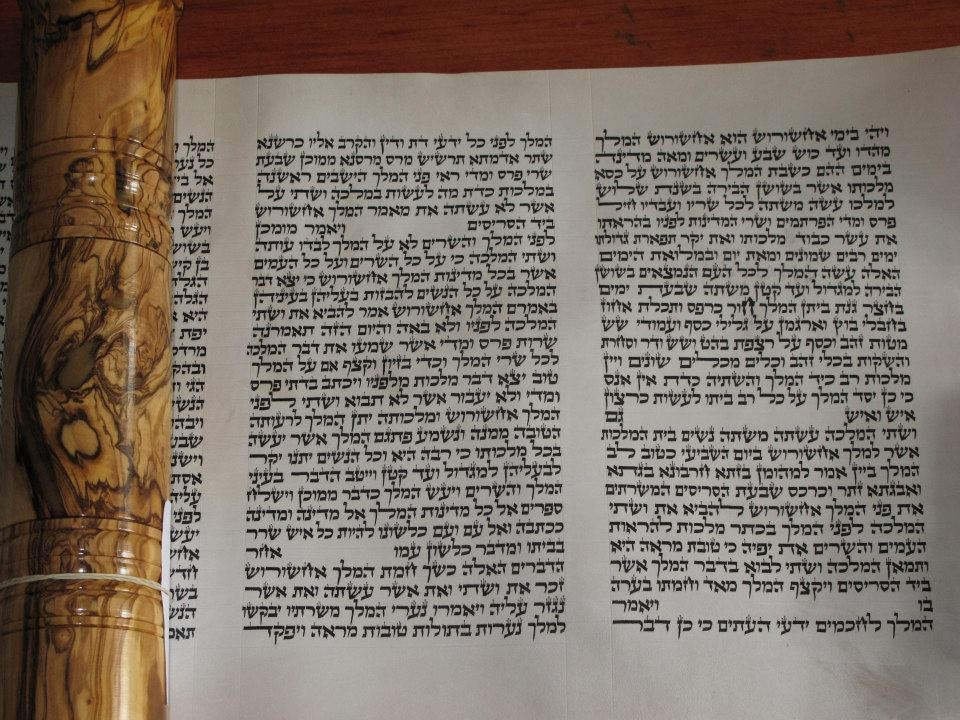 ויהי בימי אחשורוש הוא אחשורוש המלך
מהדו ועד כוש שבע ועשרים ומאה מדינה
בימים ההם כשבת המלך אחשורוש על כסא
מלכותו אשר בשושן הבירה בשנת שלוש
למלכו עשה משתה לכל שריו ועבדיו חיל
פרס ומדי הפרתמים ושרי המדינות לפניו בהראתו
את עשר כבוד מלכותו ואת יקר תפארת גדולתו
ימים רבים שמונים ומאת יום ובמלואת הימים
האלה עשה המלך לכל העם הנמצאים בשושן
הבירה למגדול ועד קטן משתה שבעת ימים
בחצר גנת ביתן המלך חור כרפס ותכלת אחוז
בחבלי בוץ וארגמן על גלילי כסף ועמודי שש
מטות זהב וכסף על רצפת בהט ושש ודר וסחרת
והשקות בכלי זהב וכלים מכלים שונים ויין
מלכות רב כיד המלך והשתיה כדת אין אנס
כי כן יסד המלך על כל רב ביתו לעשות כרצון
איש ואיש גם
ושתי המלכה עשתה משתה נשים בית המלכות
אשר למלך אחשורוש ביום השביעי כטוב לב
המלך ביין אמר למהומן בזתא חרבונא בגתא
ואבגתא זתר וכרכס שבעת הסריסים המשרתים
את פני המלך אחשורוש להביא את ושתי
המלכה לפני המלך בכתר מלכות להראות
העמים והשרים את יפיה כי טובת מראה היא
ותמאן המלכה ושתי לבוא בדבר המלך אשר
ביד הסריסים ויקצף המלך מאד וחמתו בערה
בו ויאמר
המלך לחכמים ידעי העתים כי כן דבר
המלך לפני כל ידעי דת ודין והקרב אליו כרשנא
שתר אדמתא תרשיש מרס מרסנא ממוכן שבעת
שרי פרס ומדי ראי פני המלך הישבים ראשנה
במלכות כדת מה לעשות במלכה ושתי על
אשר לא עשתה את מאמר המלך אחשורוש
ביד הסריסים ויאמר מומכן
לפני המלך והשרים לא על המלך לבדו עותה
ושתי המלכה כי על כל השרים ועל כל העמים
אשר בכל מדינות המלך אחשורוש כי יצא דבר
המלכה על כל הנשים להבזות בעליהן בעיניהן
באמרם המלך אחשורוש אמר להביא את ושתי
המלכה לפניו ולא באה והיום הזה תאמרנה
שרות פרס ומדי אשר שמעו את דבר המלכה
לכל שרי המלך וכדי בזיון וקצף אם על המלך
טוב יצא דבר מלכות מלפניו ויכתב בדתי פרס
ומדי ולא יעבור אשר לא תבוא ושתי לפני
המלך אחשורוש ומלכותה יתן המלך לרעותה
הטובה ממנה ונשמע פתגם המלך אשר יעשה
בכל מלכותו כי רבה היא וכל הנשים יתנו יקר
לבעליהן למגדול ועד קטן וייטב הדבר בעיני
המלך והשרים ויעש המלך כדבר ממוכן וישלח
ספרים אל כל מדינות המלך אל מדינה ומדינה
ככתבה ואל עם ועם כלשונו להיות כל איש שרר
בביתו ומדבר כלשון עמו אחר
הדברים האלה כשך חמת המלך אחשורוש
זכר את ושתי ואת אשר עשתה ואת אשר
נגזר עליה ויאמרו נערי המלך משרתיו יבקשו
למלך נערות בתולות טובות מראה ויפקד
המלך
כל נער
אל בי
הנשים
המלך
ויעש
בשוש
בן קיש
הגלה
הגלה
היא
יפת
מרדכ
ובהק
הגי
הנשי
ויבה
שבע
וישנ
אסת
עליה
לפני
אשר
אחש
חדש
בשש
הנש
תאמ